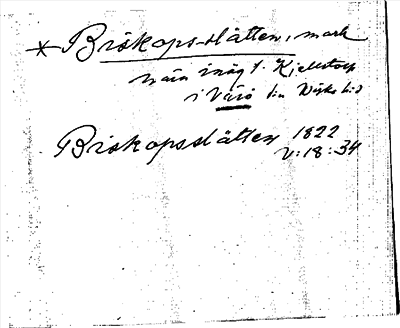 * Biskops-slätten, mark
nära inäg t. Kjellstorp
i Värö sn Viske hd
Biskopsslätten 1822
V:18:34